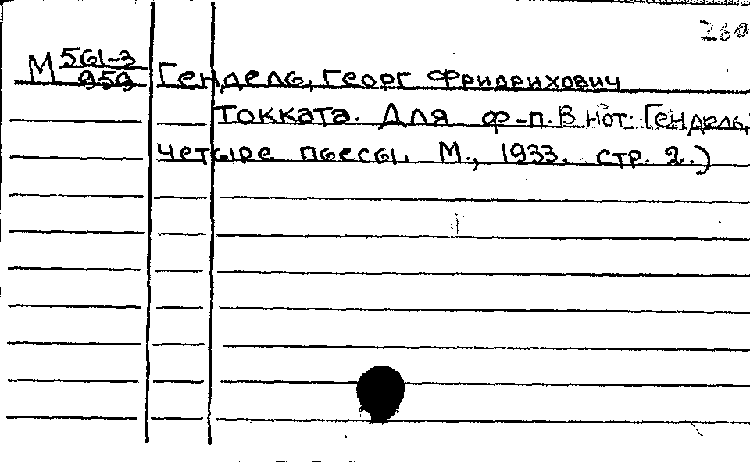 260
М 561-3/959 Гендель, Георг Фридрихович
Токката. Для ф-п. В нот. Гендель,
четыре пьесы. М., 1933. стр. 2.)